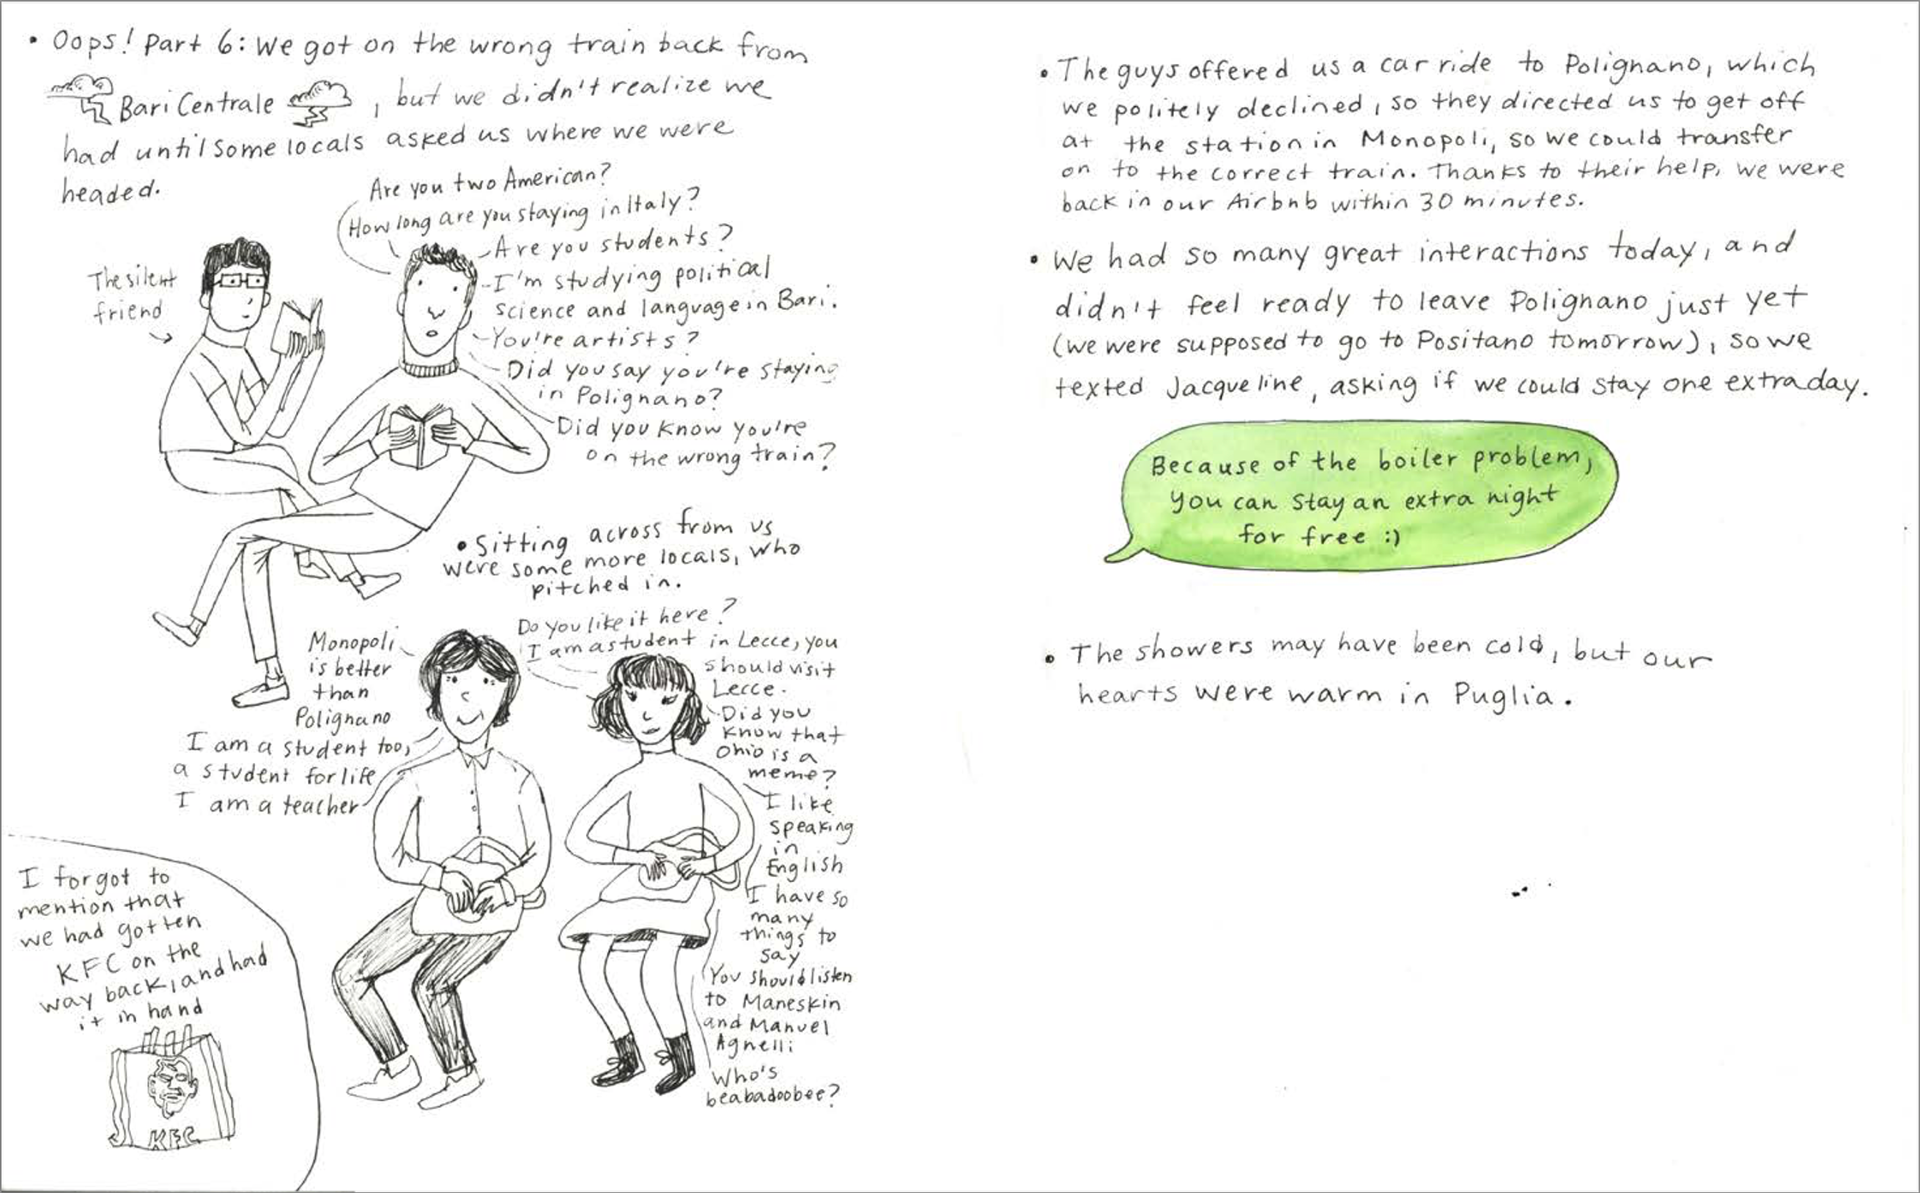 • Oops! Part 6: We got on the wrong train back from
Bari Centrale , but we didn't realize we
had until some locals asked us where we were
headed.
Are you two American?
How long are you staying in Italy?
Are you students?
I'm studying political
science and language in Bari.
You're artists?
Did you say you're staying
in Polignano?
Did you know you're
on the wrong train?
The silent
friend
• Sitting across from us
were some more locals, who
pitched in.
Monopoli
is better
than
Polignano
I am a student too,
a student for life
I am a teacher
Do you like it here?
I am a student in Lecce, you
should visit
Lecce.
Did you
know that
Ohio is a
meme?
I like
speaking
in
English
I have so
many
things to
say
You should listen
to Maneskin
and Manuel
Agnelli
Who's
beabadoobee?
I forgot to
mention that
we had gotten
KFC on the
way back, and had
it in hand
KFC
• The guys offered us a car ride to Polignano, which
we politely declined, so they directed us to get off
at the station in Monopoli, so we could transfer
on to the correct train. Thanks to their help, we were
back in our Airbnb within 30 minutes.
• We had so many great interactions today, and
didn't feel ready to leave Polignano just yet
(we were supposed to go to Positano tomorrow), so we
texted Jacqueline, asking if we could stay one extra day.
Because of the boiler problem,
you can stay an extra night
for free :)
• The showers may have been cold, but our
hearts were warm in Puglia.